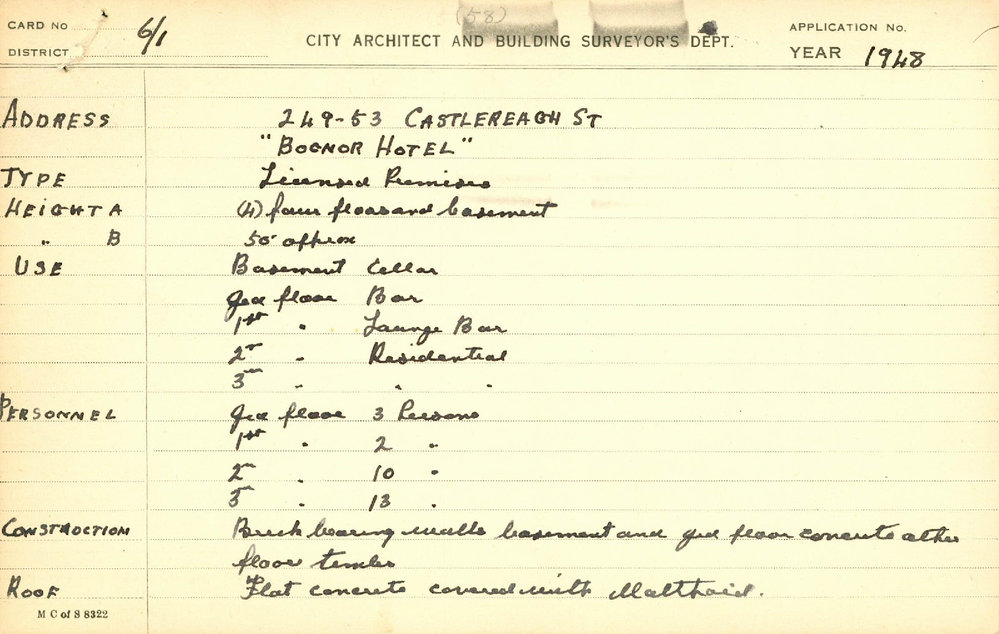 (58)
CARD No 6/1
CITY ARCHITECT AND BUILDING SURVEYOR'S DEPT.
APPLICATION No.
DISTRICT
YEAR 1948
ADDRESS 249-53 CASTLEREAGH ST
"BOGNOR HOTEL"
TYPE Licensed Premises
HEIGHT A (4) four floors and basement
" B 50 approx
USE Basement Cellar
Grd floor Bar
1st " Lounge Bar
2nd " Residential
3rd " " "
PERSONNEL Grd floor 3 Persons
1st " 2 "
2nd " 10 "
3rd " 13 "
CONSTRUCTION Brick bearing walls basement and grd floor concrete other
floors timber
ROOF Flat concrete covered with Malthoid.
M C of S 8322